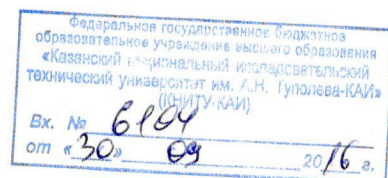 Федеральное государственное бюджетное
образовательное учреждение высшего образования
«Казанский национальный исследовательский
технический университет им. А.Н. Туполева-КАИ»
(КНИТУ-КАИ)
Вх. № 6104
от «30» 09 2016 г.